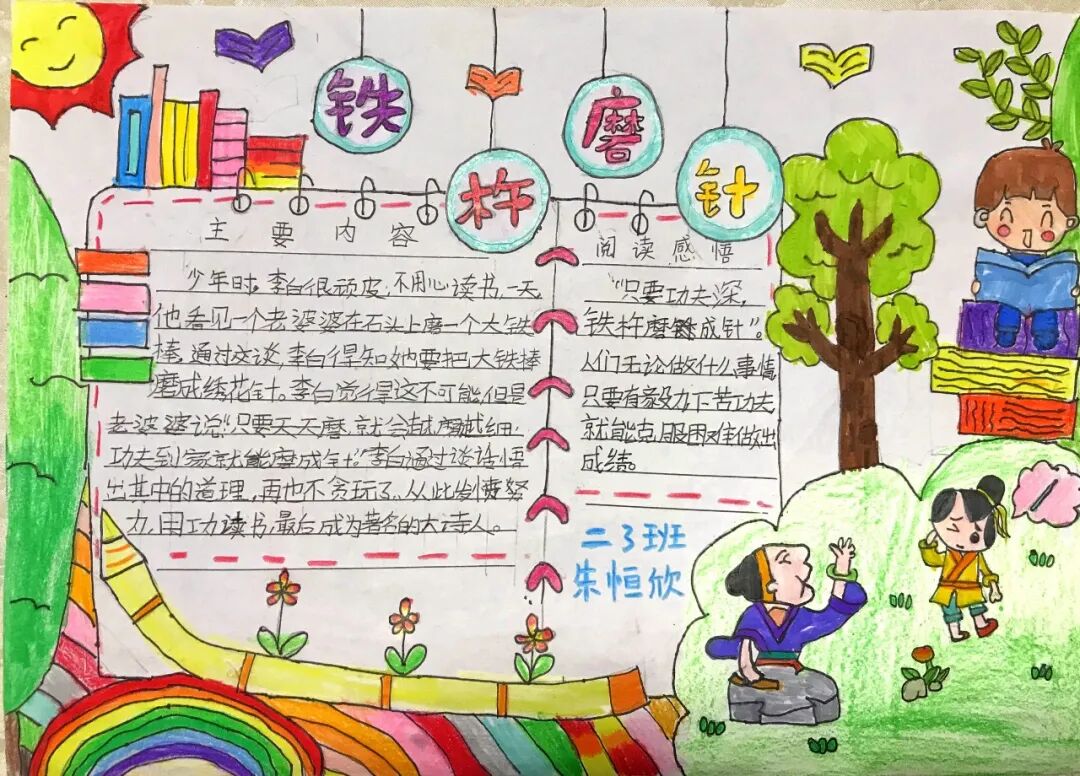 铁杵磨针
主要内容
少年时,李白很顽皮,不用心读书,一天,
他看见一个老婆婆在石头上磨一个大铁
棒,通过交谈,李白得知她要把大铁棒
磨成绣花针。李白觉得这不可能但是
老婆婆说“只要天天磨,就会越磨越细,
功夫到家就能磨成针”李白通过谈话悟
出其中的道理,再也不贪玩了、从此发愤努
力,用功读书,最后成为著名的大诗人。
阅读感悟
“只要功夫深,
铁杵磨成针”。
人们无论做什么事情
只要有毅力下苦功夫
就能克服困难做出
成绩。
二3班
朱恒欣